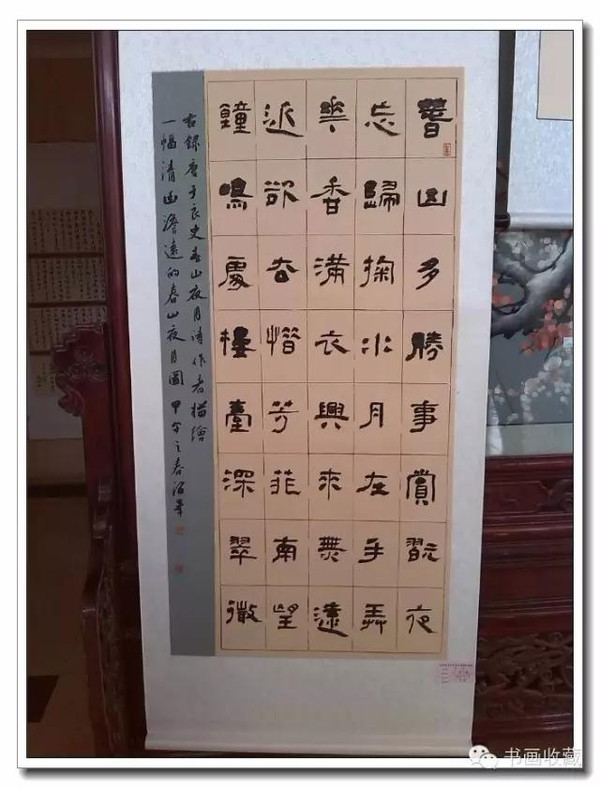 春山多勝事賞翫夜
忘歸掬水月在手弄
華香滿衣興來無遠
近欲去惜芳菲南望
鐘鳴處樓臺深翠微
右録唐于良史春山夜月诗作者描繪
一幅清幽澹遠的春山夜月圖 甲午之春
书画收藏